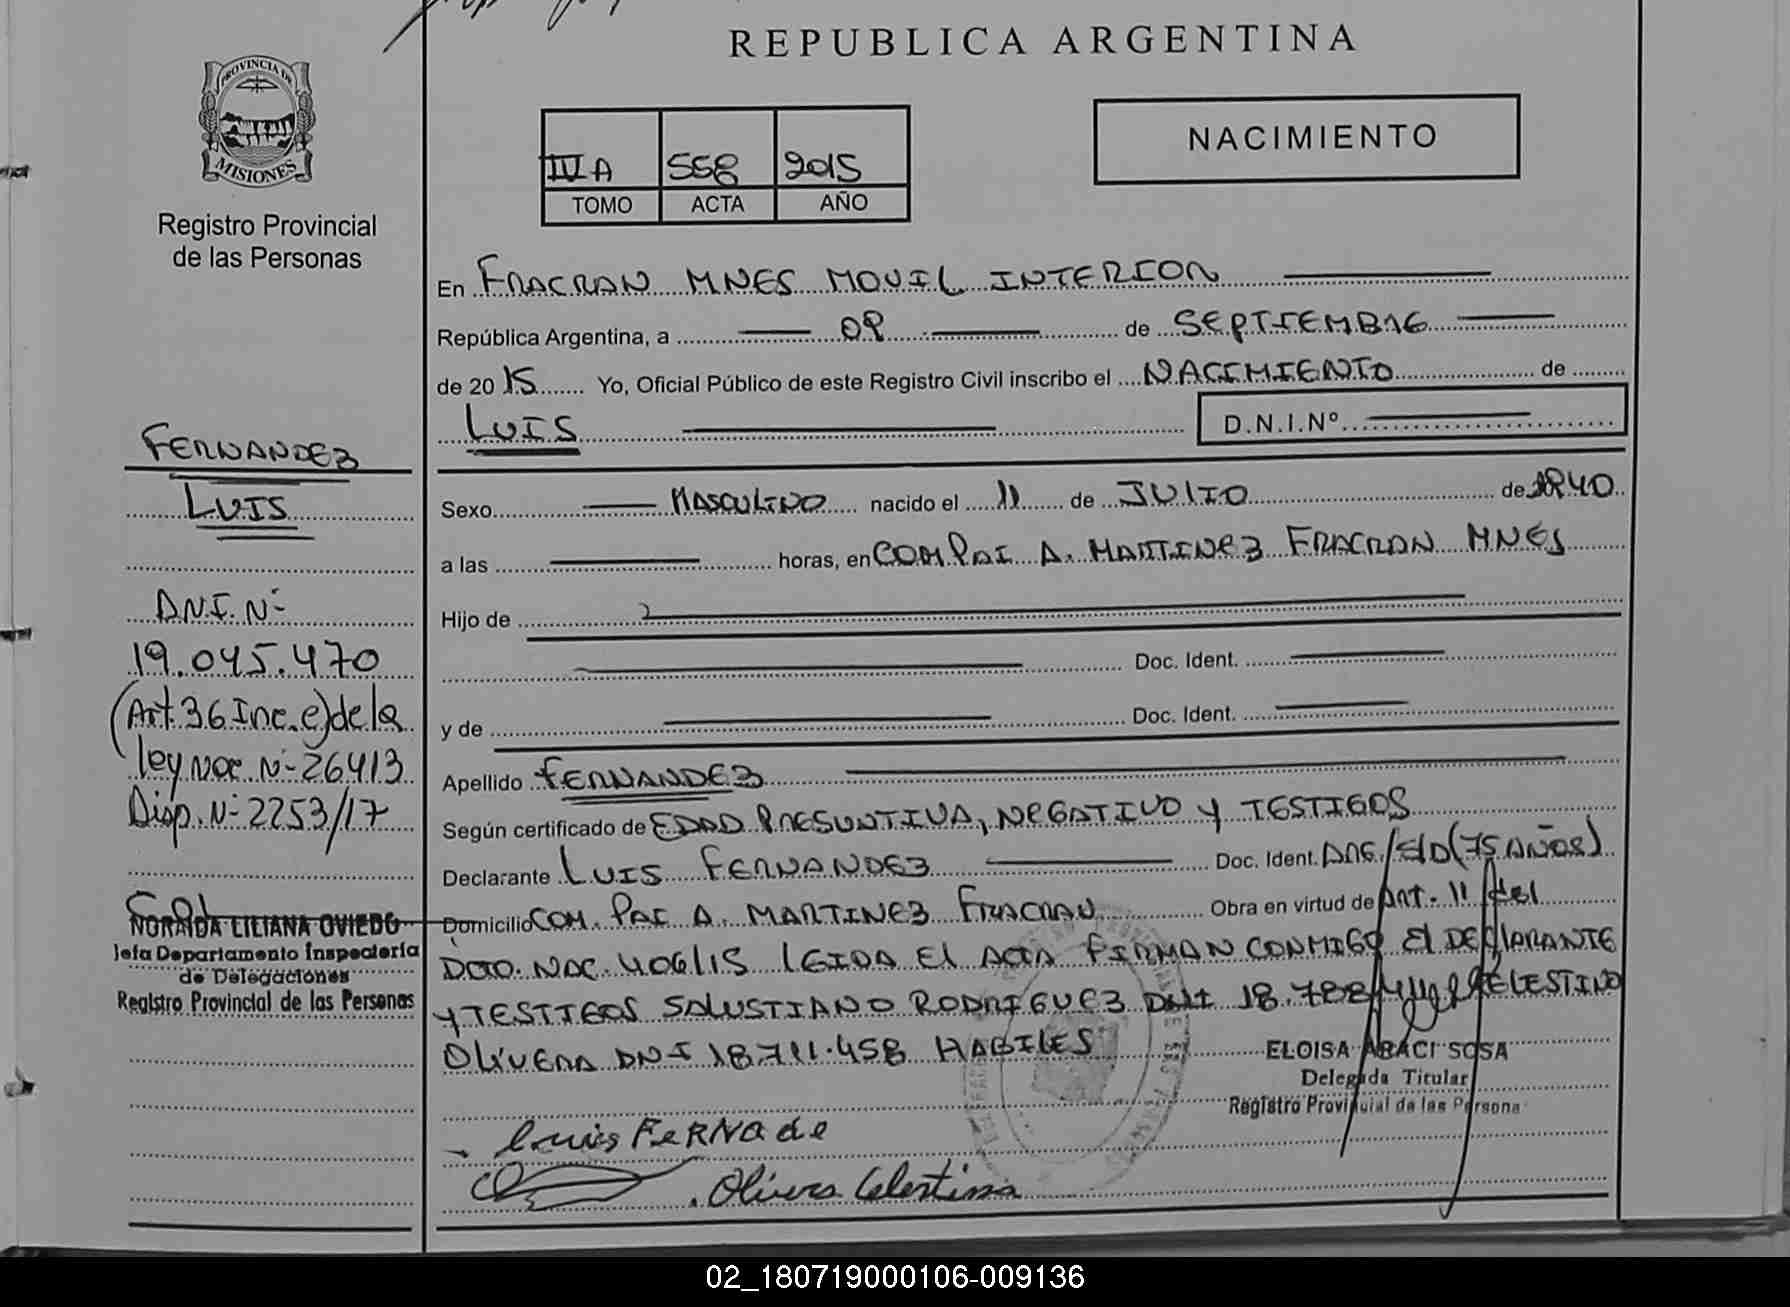 REPUBLICA ARGENTINA
PROVINCIA DE
MISIONES
Registro Provincial
de las Personas
IV A 558 2015
TOMO ACTA AÑO
NACIMIENTO
En FRACRAN MNES MOVIL INTERIOR
República Argentina, a 08 de SEPTIEMBRE
de 2015 Yo, Oficial Público de este Registro Civil inscribo el NACIMIENTO de
LUIS D.N.I.Nº
Sexo MASCULINO nacido el 11 de JULIO de 1940
a las horas, en COM PAI A. MARTINEZ FRACRAN MNES
Hijo de
Doc. Ident.
y de Doc. Ident.
Apellido FERNANDEZ
Según certificado de EDAD PRESUNTIVA, NEGATIVO Y TESTIGOS
Declarante LUIS FERNANDEZ Doc. Ident. ARG/S/D (75 AÑOS)
Domicilio COM. PAI A. MARTINEZ FRACRAN Obra en virtud de ART. 11 del
DCTO. NAC. 406/15 LEIDA El ACTA FIRMAN CONMIGO El DECLARANTE
Y TESTIGOS SALUSTIANO RODRIGUEZ DNI 18.788 CELESTINO
OLIVERA DNI 18711.458 HABILES
ELOISA ARACI SOSA
Delegada Titular
Registro Provincial de las Persona
Luis FeRNade
Olivera Celestino
FERNANDEZ
LUIS
D.N.I. Nº
19.045.470
(Art. 36 Inc. e) de la
ley Nac. Nº 26413
Disp. Nº 2253/17
NORAIDA LILIANA OVIEDO
Jefa Departamento Inspectoría
de Delegaciones
Registro Provincial de las Personas
02_180719000106-009136